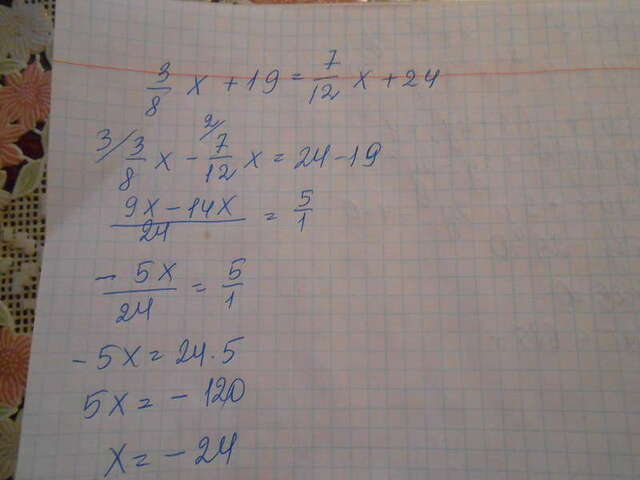 3/8 x + 19 = 7/12 x + 24
3/ 3/8 x - 2/ 7/12 x = 24 - 19
(9x - 14x)/24 = 5/1
- 5x/24 = 5/1
-5x = 24 · 5
5x = - 120
x = - 24